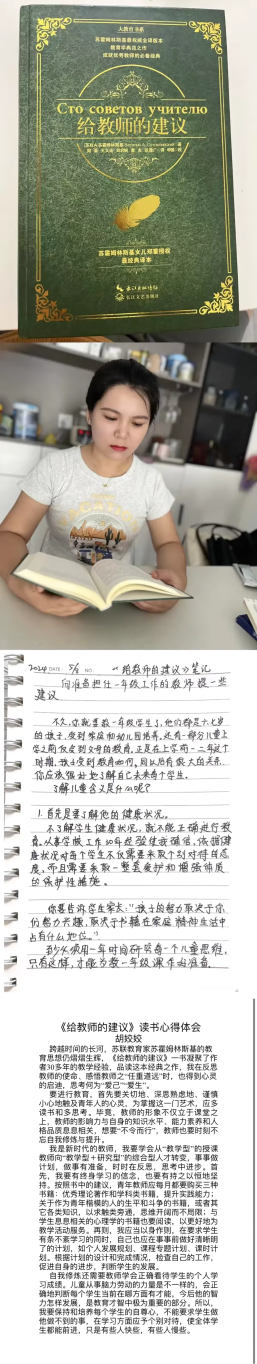 大教育书系
苏霍姆林斯基最权威全译版本
教育学典范之作
成就优秀教师的必备经典
Сто советов учителю
给教师的建议
苏霍姆林斯基女儿郑重授权
最经典译本
长江文艺出版社
2024 DATE: 5/6 NO: 《给教师的建议》笔记
向准备担任一年级工作的教师提一些
建议
1. 首先是要了解他的健康状况。
不了解学生健康状况，就不能正确进行教
育。从事学校工作30年经验使我确信，依据健
康状况对每个学生不仅需要采取个别对待的态
度，而且需要采取一整套爱护和增强体质
的保护性措施。
《给教师的建议》读书心得体会
胡姣姣
跨越时间的长河，苏联教育家苏霍姆林斯基的教
育思想仍熠熠生辉，《给教师的建议》一书凝聚了作
者30多年的教学经验，品读这本经典之作，我在反思
教师的使命、感悟教师之“任重道远”时，也得到心灵
的启迪，思考何为“爱己”“爱生”。
要进行教育，首先要关切地、深思熟虑地、谨慎
小心地触及青年人的心灵，为掌握这一门艺术，应多
读书和多思考。毕竟，教师的形象不仅立于课堂之
上，教师的影响力与自身的知识水平、能力素养和人
格品质息息相关，想要“不令而行”，教师也要时刻不
忘自我修炼与提升。
我是新时代的教师，我要学会从“教学型”的授课
教师向“教学型＋研究型”的综合型人才转变，事事做
计划，做事有准备，时时在反思，思考中进步。首
先，我要有终身学习的信念，也要有持之以恒地坚
持。按照书中的建议，青年教师应每月都要购买三种
书籍：优秀理论著作和学科类书籍，提升实践能力；
关于作为青年楷模的人的生平和斗争的书籍，或者其
它各类知识，以求触类旁通，思维开阔而不局限；与
学生息息相关的心理学的书籍也要阅读，以更好地为
教学活动服务。再则，我应当以身作则，在要求学生
有条不紊学习的同时，自己也应在事事前做好清晰明
了的计划，如个人发展规划、课程专题计划、课时计
划。根据计划的设计和完成情况，检查自己的工作，
促进自身的进步，判断学生的发展。
自我修炼还需要教师学会正确看待学生的个人学
习成绩。儿童从事脑力劳动的力量是不一样的，会正
确地判断每个学生当前在哪方面有才能，今后他的智
力怎样发展，是教育才智中极为重要的部分。所以，
我要保持和培养每个学生的自尊心，不能要求学生做
他做不到的事，在学习方面应予个别对待，使全体学
生都能前进，只是有些人快些，有些人慢些。